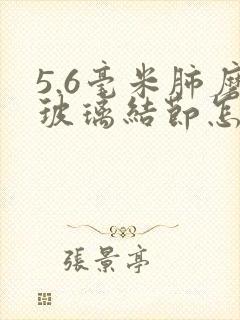 5.6毫米肺磨
玻璃結節怎
張景亭